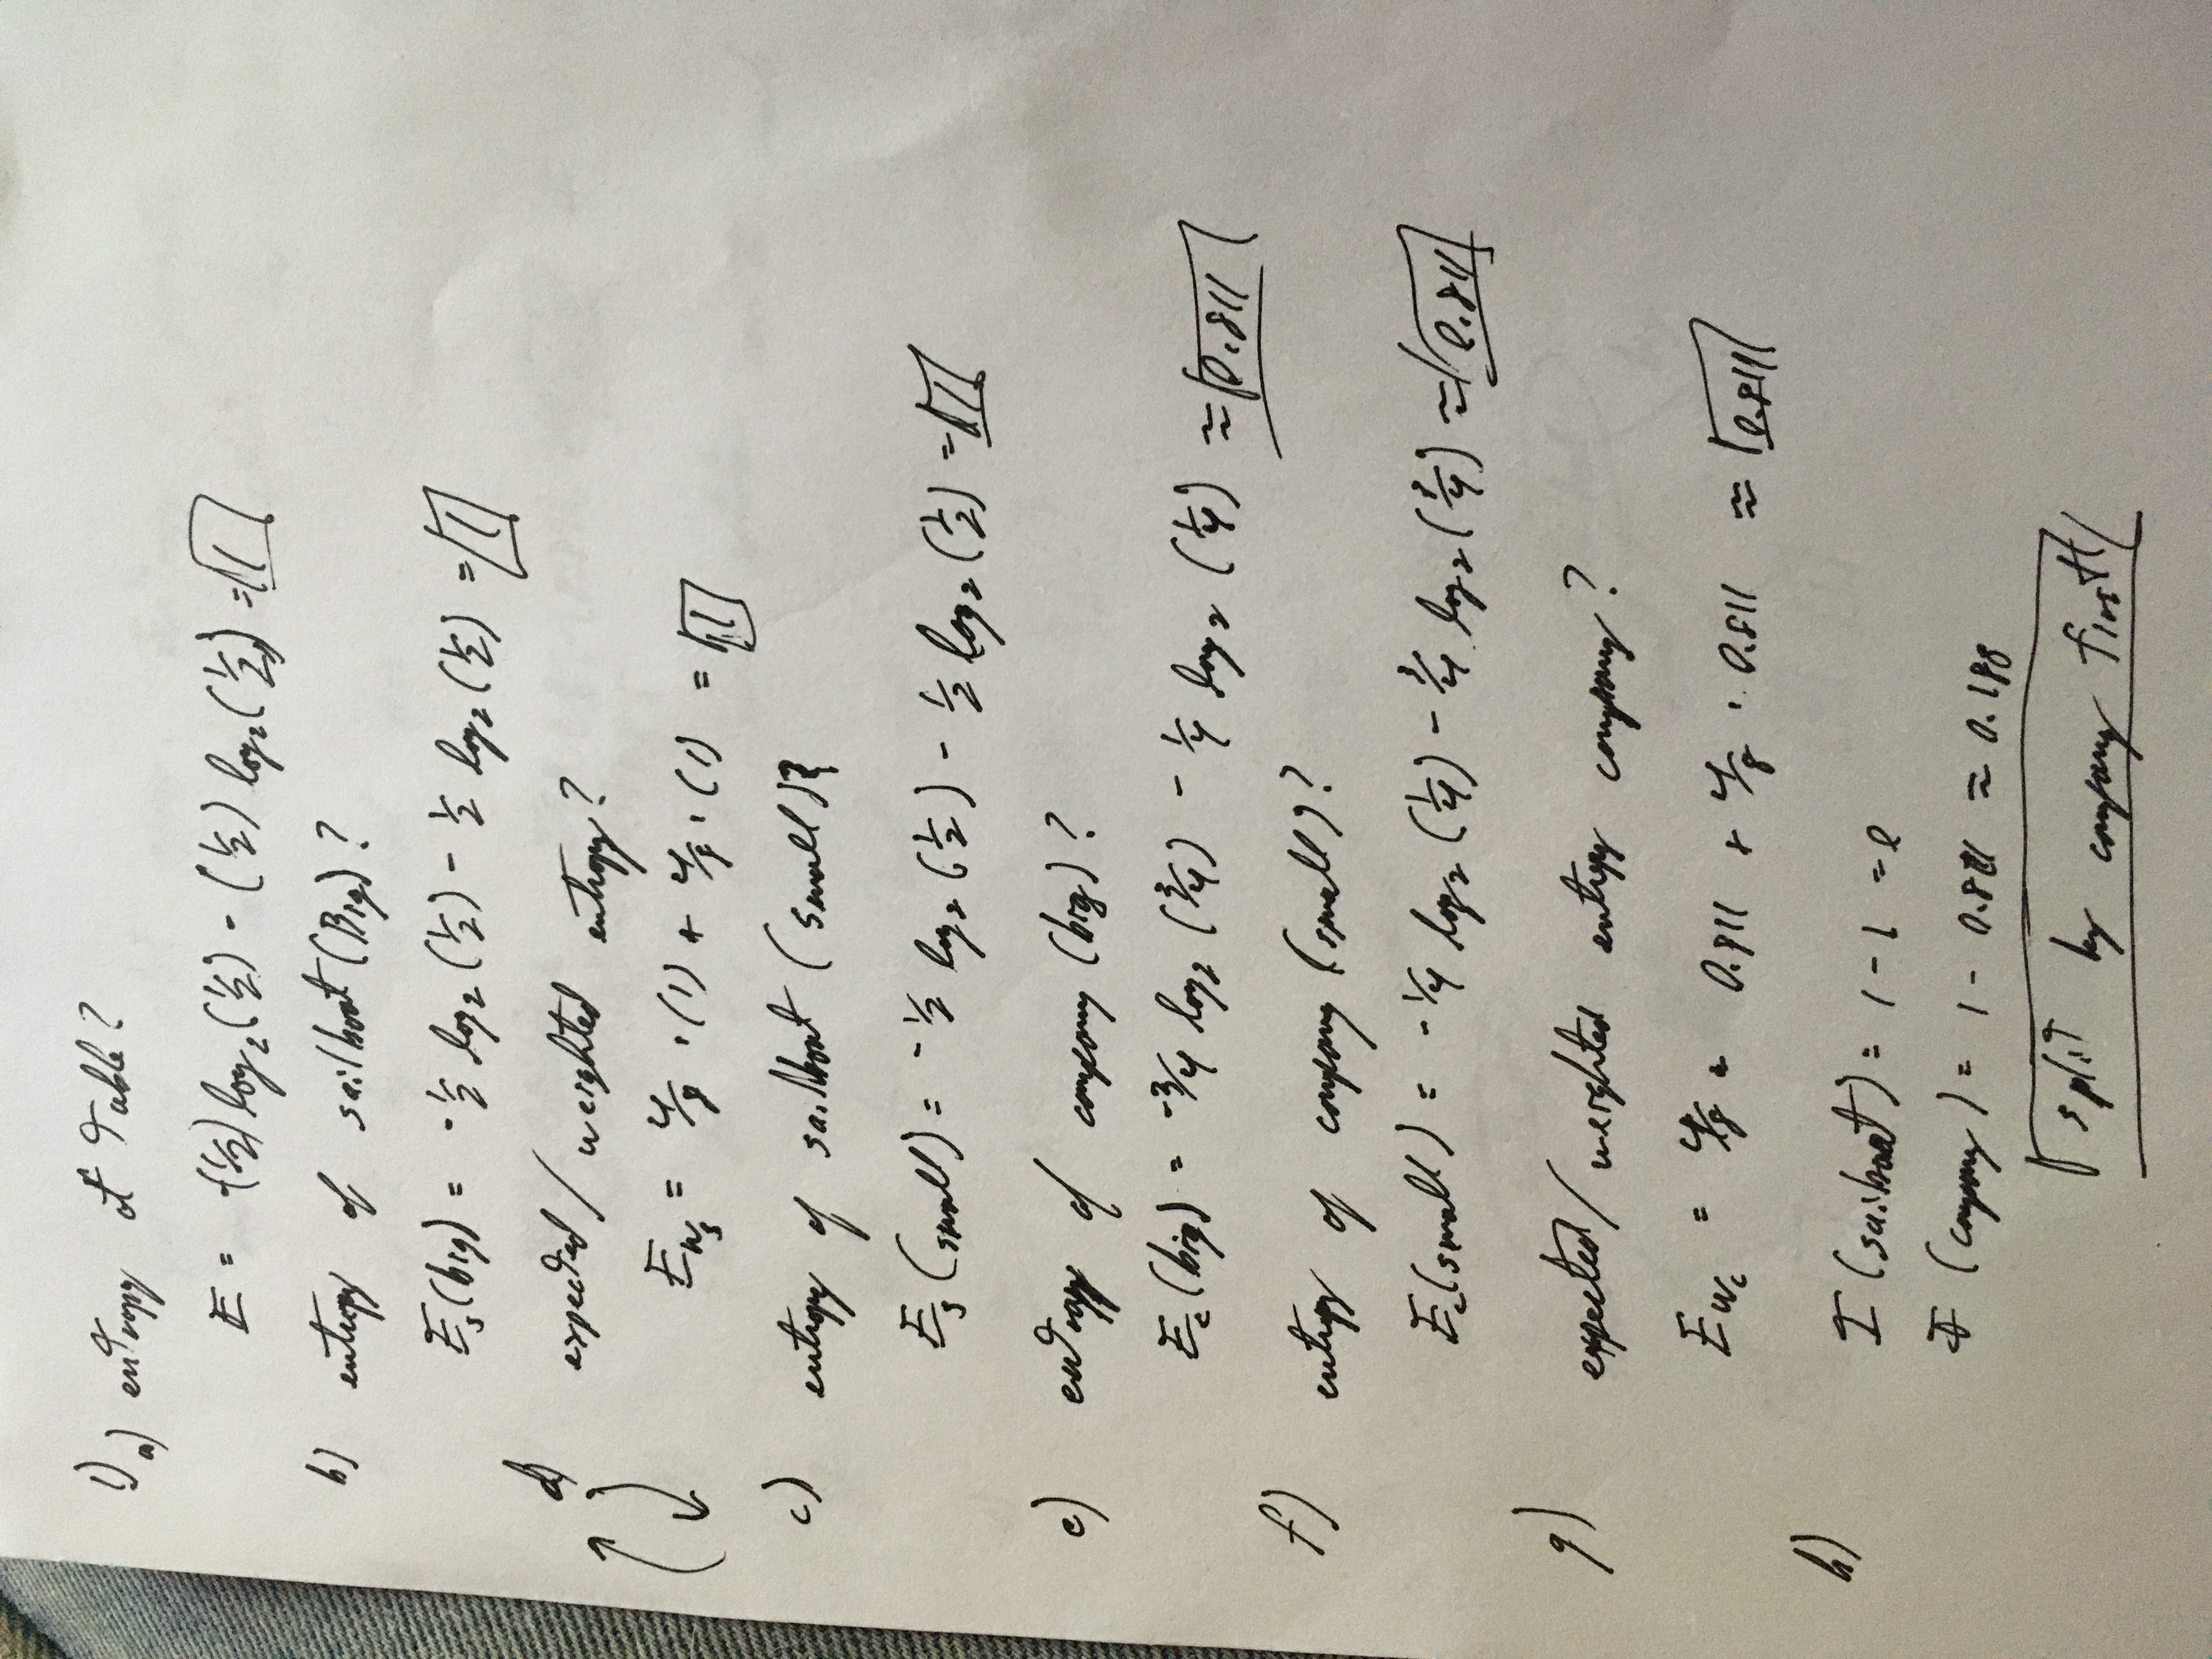 1) a) entropy of Table?
E = -(1/2) log₂(1/2) - (1/2) log₂(1/2) = 1
b) entropy of sailboat (Big)?
E_s(big) = -1/2 log₂(1/2) - 1/2 log₂(1/2) = 1
d) expected/weighted entropy?
E_ws = 4/8 · (1) + 4/8 · (1) = 1
c) entropy of sailboat (small)?
E_s(small) = -1/2 log₂(1/2) - 1/2 log₂(1/2) = 1
e) entropy of company (big)?
E_c(big) = -3/4 log₂(3/4) - 1/4 log₂(1/4) ≈ 0.811
f) entropy of company (small)?
E_c(small) = -1/4 log₂(1/4) - 3/4 log₂(3/4) ≈ 0.811
g) expected/weighted entropy company?
E_wc = 4/8 · 0.811 + 4/8 · 0.811 ≈ 0.811
h) I (sailboat) = 1 - 1 = 0
I (company) = 1 - 0.811 ≈ 0.188
split by company first